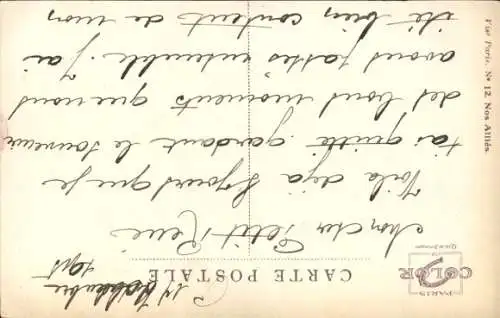 CARTE POSTALE
PARIS
COLOR
17 Septembre
1915
Mon cher Petit René
Voila deja 3 jours que je
t'ai quitté gardant le souvenir
des bons moments que nous
avons passés ensemble. J'ai
été bien content de mon
Visé Paris. No 12. Nos Alliés.